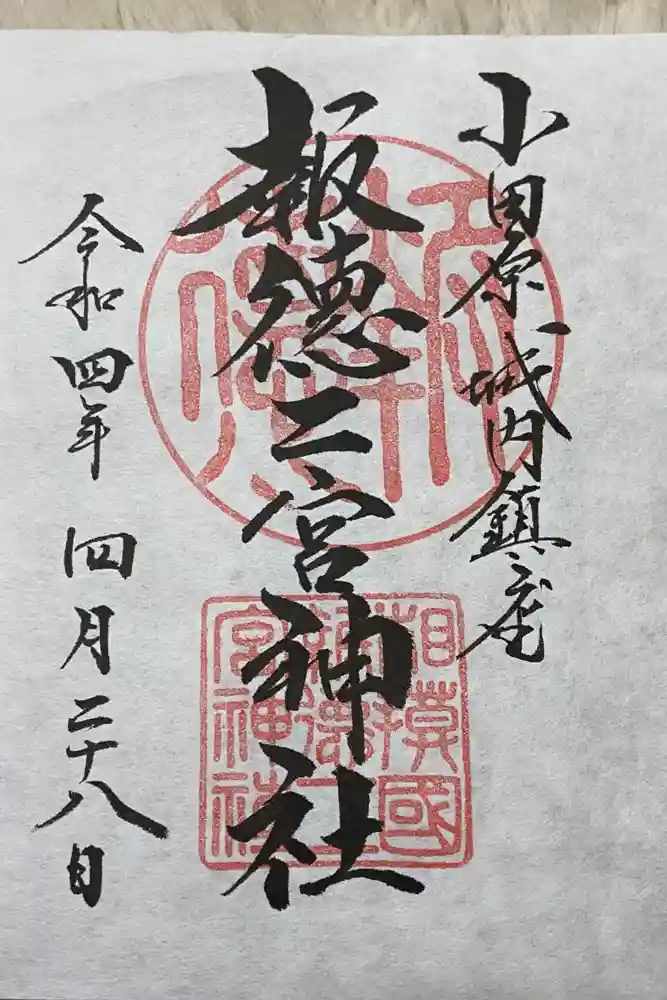 小田原城内鎮座
報徳二宮神社
相模國
報徳二
宮神社
令和四年 四月二十八日